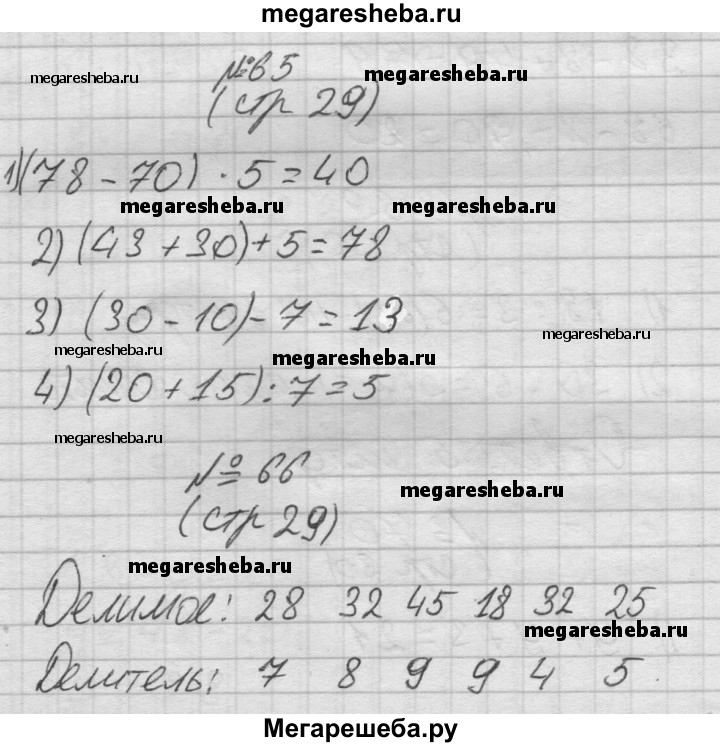 megaresheba.ru
№65
megaresheba.ru megaresheba.ru
(стр 29)
1) (78 - 70) · 5 = 40
megaresheba.ru megaresheba.ru
2) (43 + 30) + 5 = 78
3) (30 - 10) - 7 = 13
megaresheba.ru
megaresheba.ru megaresheba.ru
4) (20 + 15) : 7 = 5
megaresheba.ru
№ 66
megaresheba.ru
(стр 29)
megaresheba.ru
Делимое: 28 32 45 18 32 25
megaresheba.ru
Делитель: 7 8 9 9 4 5
Мегарешеба.ру